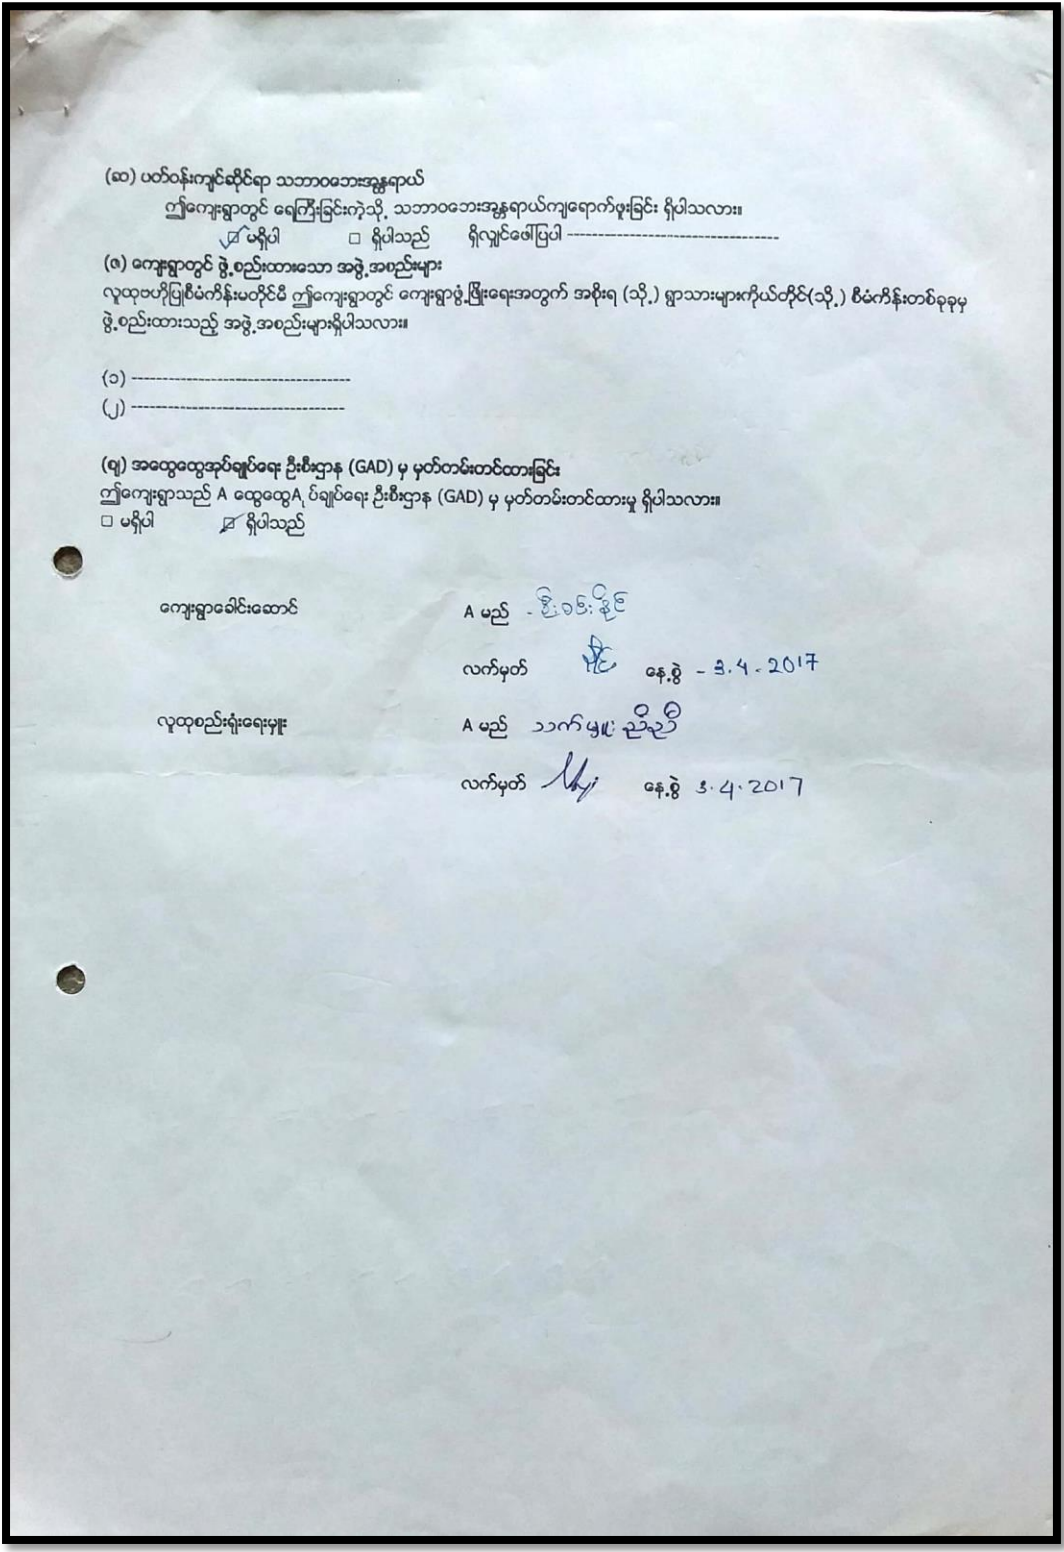 (ဆ) ပတ်ဝန်းကျင်ဆိုင်ရာ သဘာဝဘေးအန္တရာယ်
ဤကျေးရွာတွင် ရေကြီးခြင်းကဲ့သို့ သဘာဝဘေးအန္တရာယ်ကျရောက်ဖူးခြင်း ရှိပါသလား။
☑ မရှိပါ □ ရှိပါသည် ရှိလျှင်ဖေါ်ပြပါ -----------------------------------
(ဇ) ကျေးရွာတွင် ဖွဲ့စည်းထားသော အဖွဲ့အစည်းများ
လူထုဗဟိုပြုစီမံကိန်းမတိုင်မီ ဤကျေးရွာတွင် ကျေးရွာဖွံ့ဖြိုးရေးအတွက် အစိုးရ (သို့) ရွာသားများကိုယ်တိုင်(သို့) စီမံကိန်းတစ်ခုခုမှ
ဖွဲ့စည်းထားသည့် အဖွဲ့အစည်းများရှိပါသလား။
(၁) ------------------------------------
(၂) -----------------------------------
(ဈ) အထွေထွေအုပ်ချုပ်ရေး ဦးစီးဌာန (GAD) မှ မှတ်တမ်းတင်ထားခြင်း
ဤကျေးရွာသည် A ထွေထွေAုပ်ချုပ်ရေး ဦးစီးဌာန (GAD) မှ မှတ်တမ်းတင်ထားမှု ရှိပါသလား။
□ မရှိပါ ☑ ရှိပါသည်
ကျေးရွာခေါင်းဆောင် A မည် - ဦးဝင်းနိုင်
လက်မှတ် နေ့စွဲ - 3.4.2017
လူထုစည်းရုံးရေးမှူး A မည် သက်မှူးညီညီ
လက်မှတ် နေ့စွဲ 3.4.2017